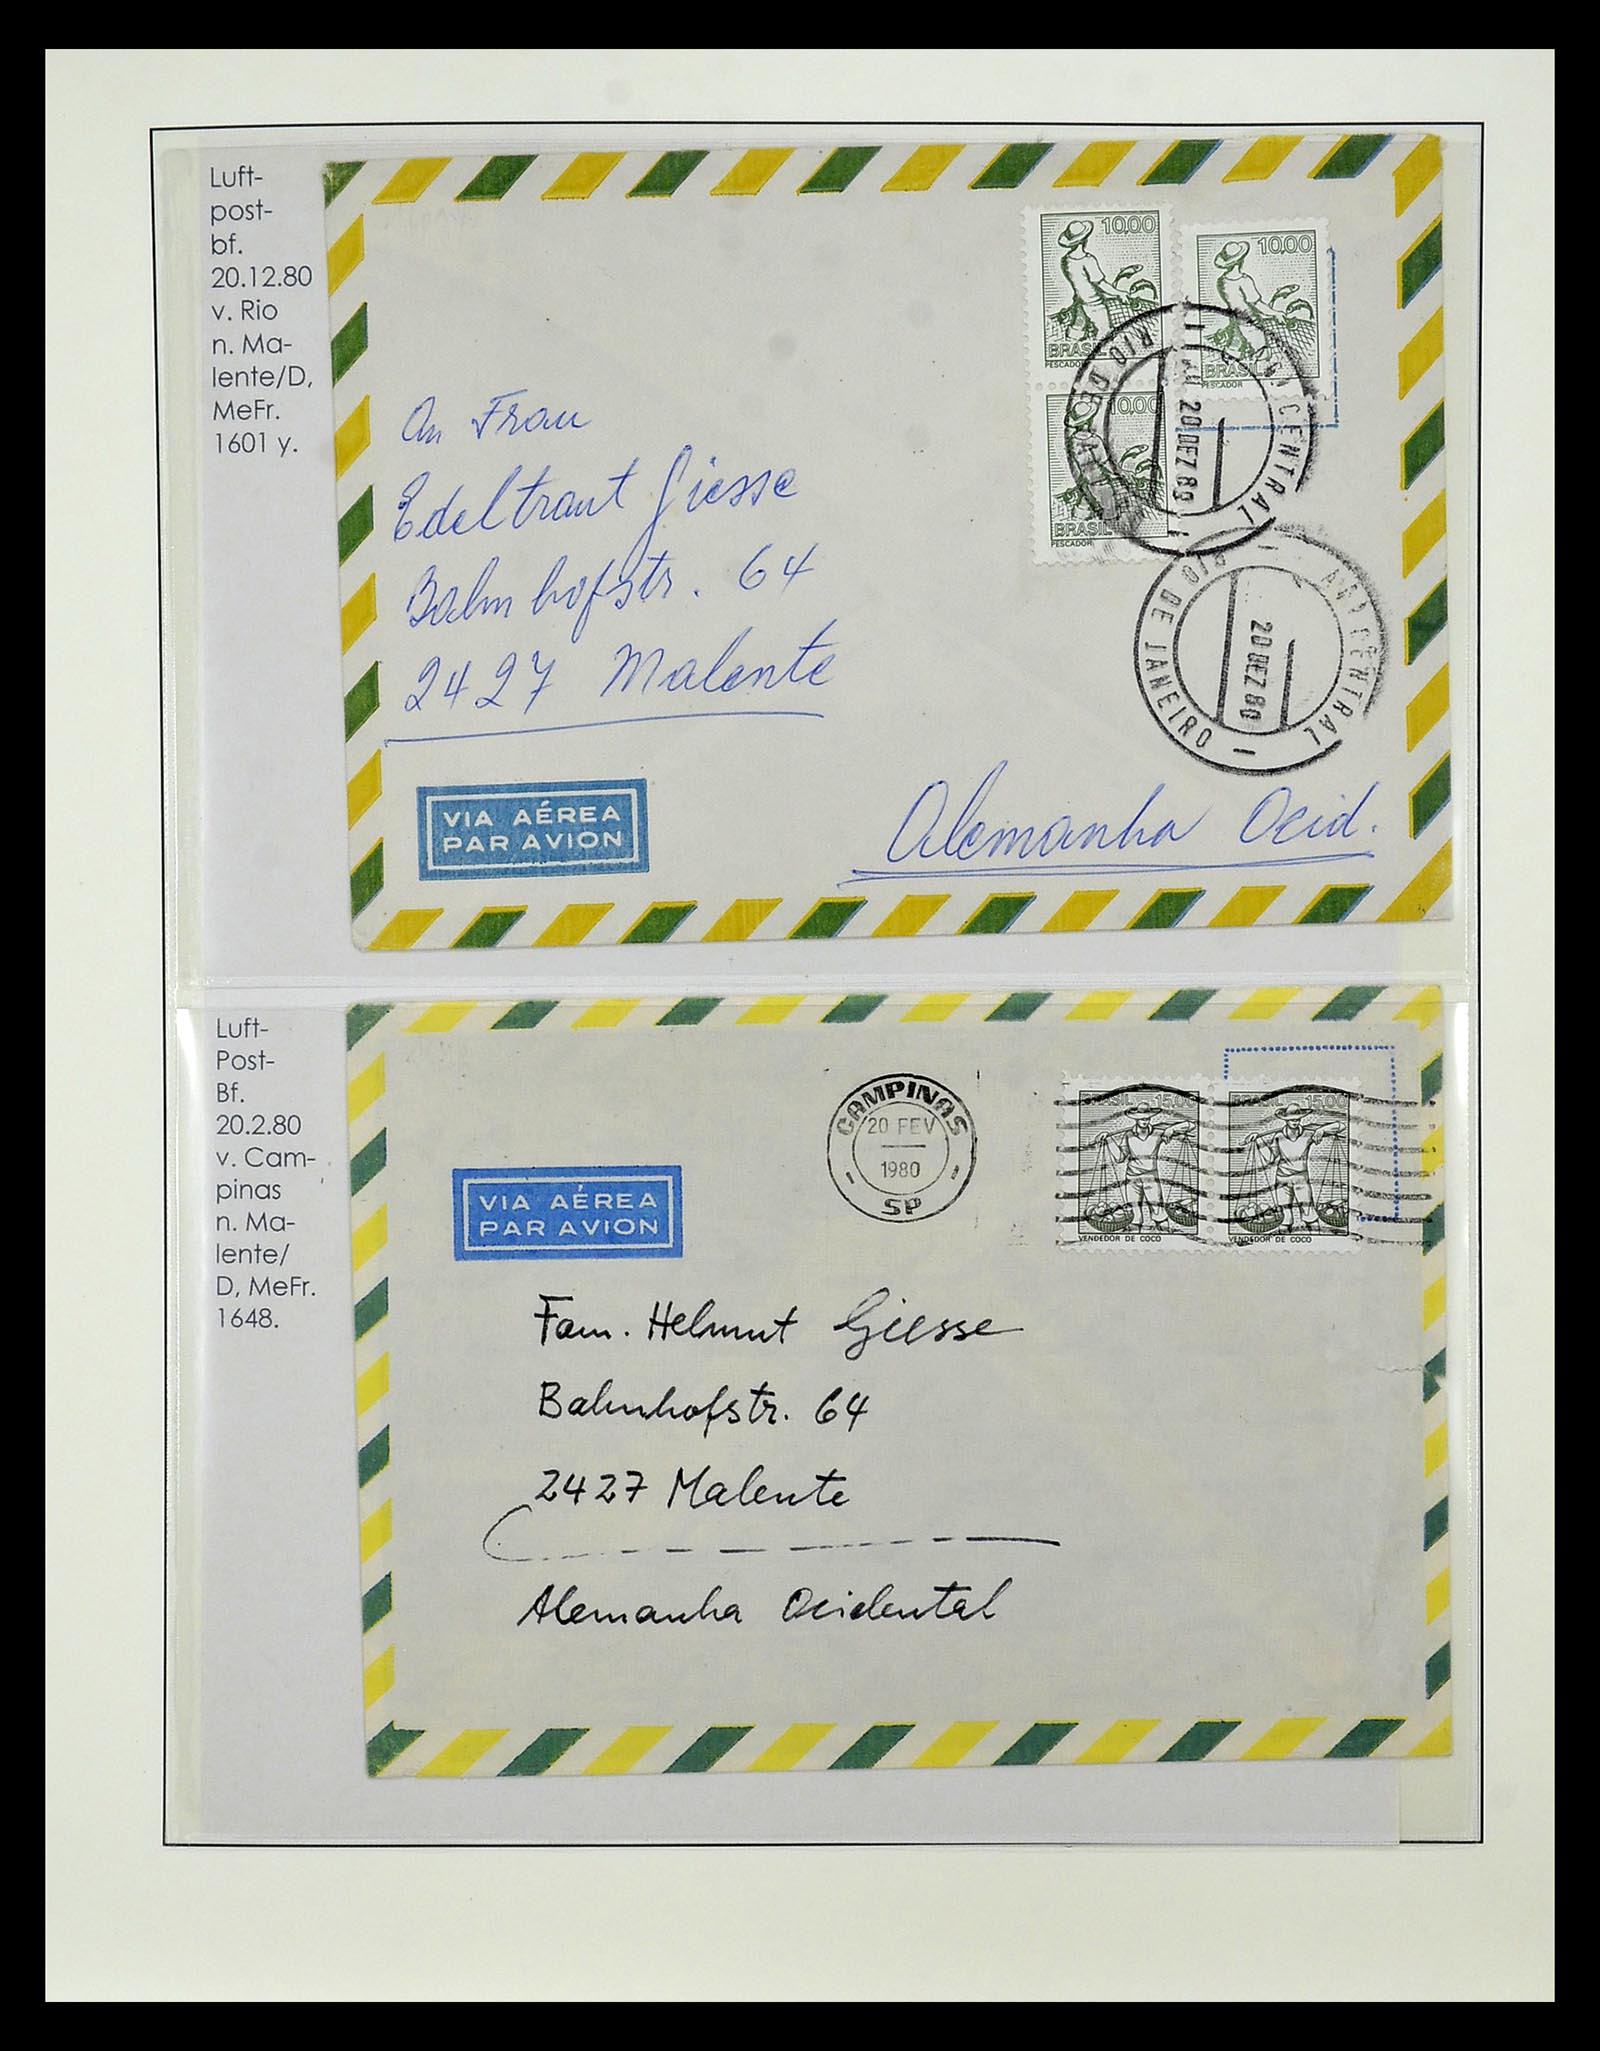 Luft-
post-
bf.
20.12.80
v. Rio
n. Ma-
lente/D,
MeFr.
1601 y.
10,00
BRASIL
PESCADOR
10,00
BRASIL
PESCADOR
10,00
BRASIL
PESCADOR
RIO DE JANEIRO
CENTRAL
20 DEZ 80
RIO DE JANEIRO — CENTRAL
20 DEZ 80
An Frau
Edeltraut Giesse
Bahnhofstr. 64
2427 Malente
Alemanha Ocid.
VIA AÉREA
PAR AVION
Luft-
Post-
Bf.
20.2.80
v. Cam-
pinas
n. Ma-
lente/
D, MeFr.
1648.
CAMPINAS
20 FEV
1980
SP
BRASIL 15,00
VENDEDOR DE COCO
BRASIL 15,00
VENDEDOR DE COCO
VIA AÉREA
PAR AVION
Fam. Helmut Giesse
Bahnhofstr. 64
2427 Malente
Alemanha Ocidental